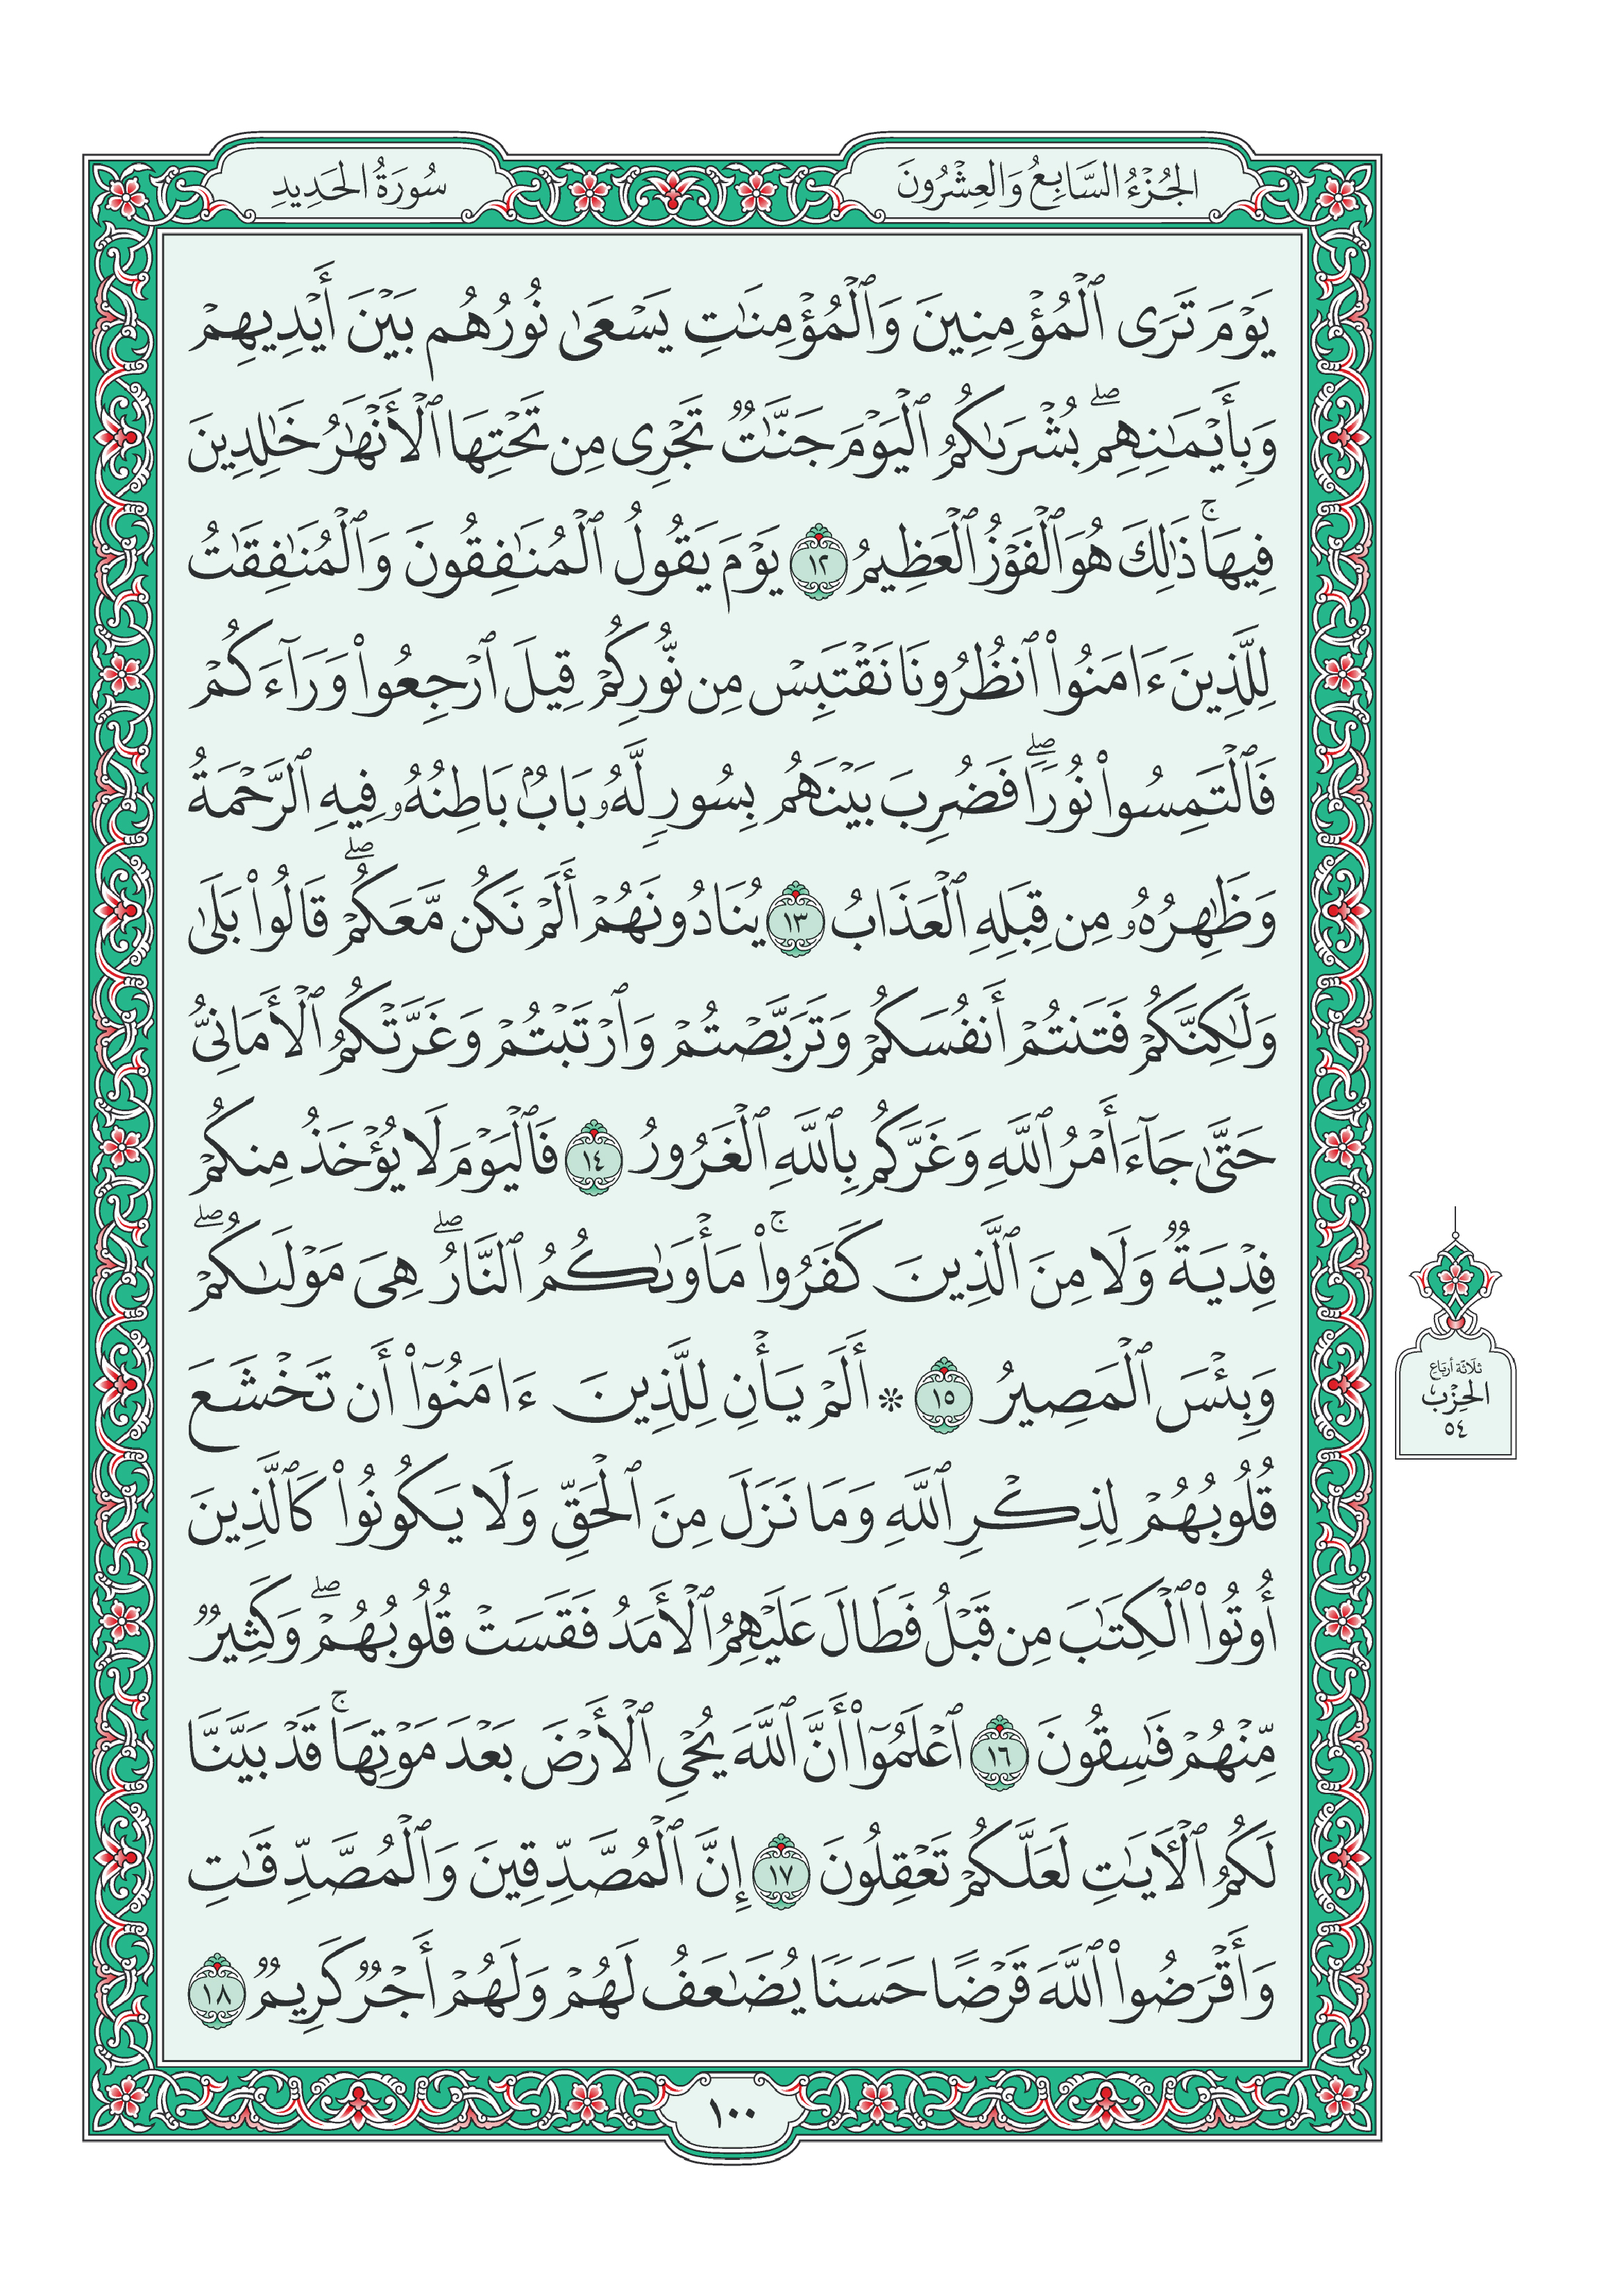 الجُزْءُ السَّابِعُ وَالعِشْرُونَ
سُورَةُ الحَدِيدِ
يَوْمَ تَرَى ٱلْمُؤْمِنِينَ وَٱلْمُؤْمِنَٰتِ يَسْعَىٰ نُورُهُم بَيْنَ أَيْدِيهِمْ
وَبِأَيْمَٰنِهِمۖ بُشْرَىٰكُمُ ٱلْيَوْمَ جَنَّٰتٌ تَجْرِى مِن تَحْتِهَا ٱلْأَنْهَٰرُ خَٰلِدِينَ
فِيهَاۚ ذَٰلِكَ هُوَ ٱلْفَوْزُ ٱلْعَظِيمُ ١٢ يَوْمَ يَقُولُ ٱلْمُنَٰفِقُونَ وَٱلْمُنَٰفِقَٰتُ
لِلَّذِينَ ءَامَنُوا۟ ٱنظُرُونَا نَقْتَبِسْ مِن نُّورِكُمْ قِيلَ ٱرْجِعُوا۟ وَرَآءَكُمْ
فَٱلْتَمِسُوا۟ نُورًاۖ فَضُرِبَ بَيْنَهُم بِسُورٍ لَّهُۥ بَابٌۢ بَاطِنُهُۥ فِيهِ ٱلرَّحْمَةُ
وَظَٰهِرُهُۥ مِن قِبَلِهِ ٱلْعَذَابُ ١٣ يُنَادُونَهُمْ أَلَمْ نَكُن مَّعَكُمْۖ قَالُوا۟ بَلَىٰ
وَلَٰكِنَّكُمْ فَتَنتُمْ أَنفُسَكُمْ وَتَرَبَّصْتُمْ وَٱرْتَبْتُمْ وَغَرَّتْكُمُ ٱلْأَمَانِىُّ
حَتَّىٰ جَآءَ أَمْرُ ٱللَّهِ وَغَرَّكُم بِٱللَّهِ ٱلْغَرُورُ ١٤ فَٱلْيَوْمَ لَا يُؤْخَذُ مِنكُمْ
فِدْيَةٌ وَلَا مِنَ ٱلَّذِينَ كَفَرُوا۟ۚ مَأْوَىٰكُمُ ٱلنَّارُۖ هِىَ مَوْلَىٰكُمْۖ
وَبِئْسَ ٱلْمَصِيرُ ١٥ ۞ أَلَمْ يَأْنِ لِلَّذِينَ ءَامَنُوٓا۟ أَن تَخْشَعَ
قُلُوبُهُمْ لِذِكْرِ ٱللَّهِ وَمَا نَزَلَ مِنَ ٱلْحَقِّ وَلَا يَكُونُوا۟ كَٱلَّذِينَ
أُوتُوا۟ ٱلْكِتَٰبَ مِن قَبْلُ فَطَالَ عَلَيْهِمُ ٱلْأَمَدُ فَقَسَتْ قُلُوبُهُمْۖ وَكَثِيرٌ
مِّنْهُمْ فَٰسِقُونَ ١٦ ٱعْلَمُوٓا۟ أَنَّ ٱللَّهَ يُحْىِ ٱلْأَرْضَ بَعْدَ مَوْتِهَاۚ قَدْ بَيَّنَّا
لَكُمُ ٱلْءَايَٰتِ لَعَلَّكُمْ تَعْقِلُونَ ١٧ إِنَّ ٱلْمُصَّدِّقِينَ وَٱلْمُصَّدِّقَٰتِ
وَأَقْرَضُوا۟ ٱللَّهَ قَرْضًا حَسَنًا يُضَٰعَفُ لَهُمْ وَلَهُمْ أَجْرٌ كَرِيمٌ ١٨
ثلاثة أرباع
الحِزْب
٥٤
١٠٠